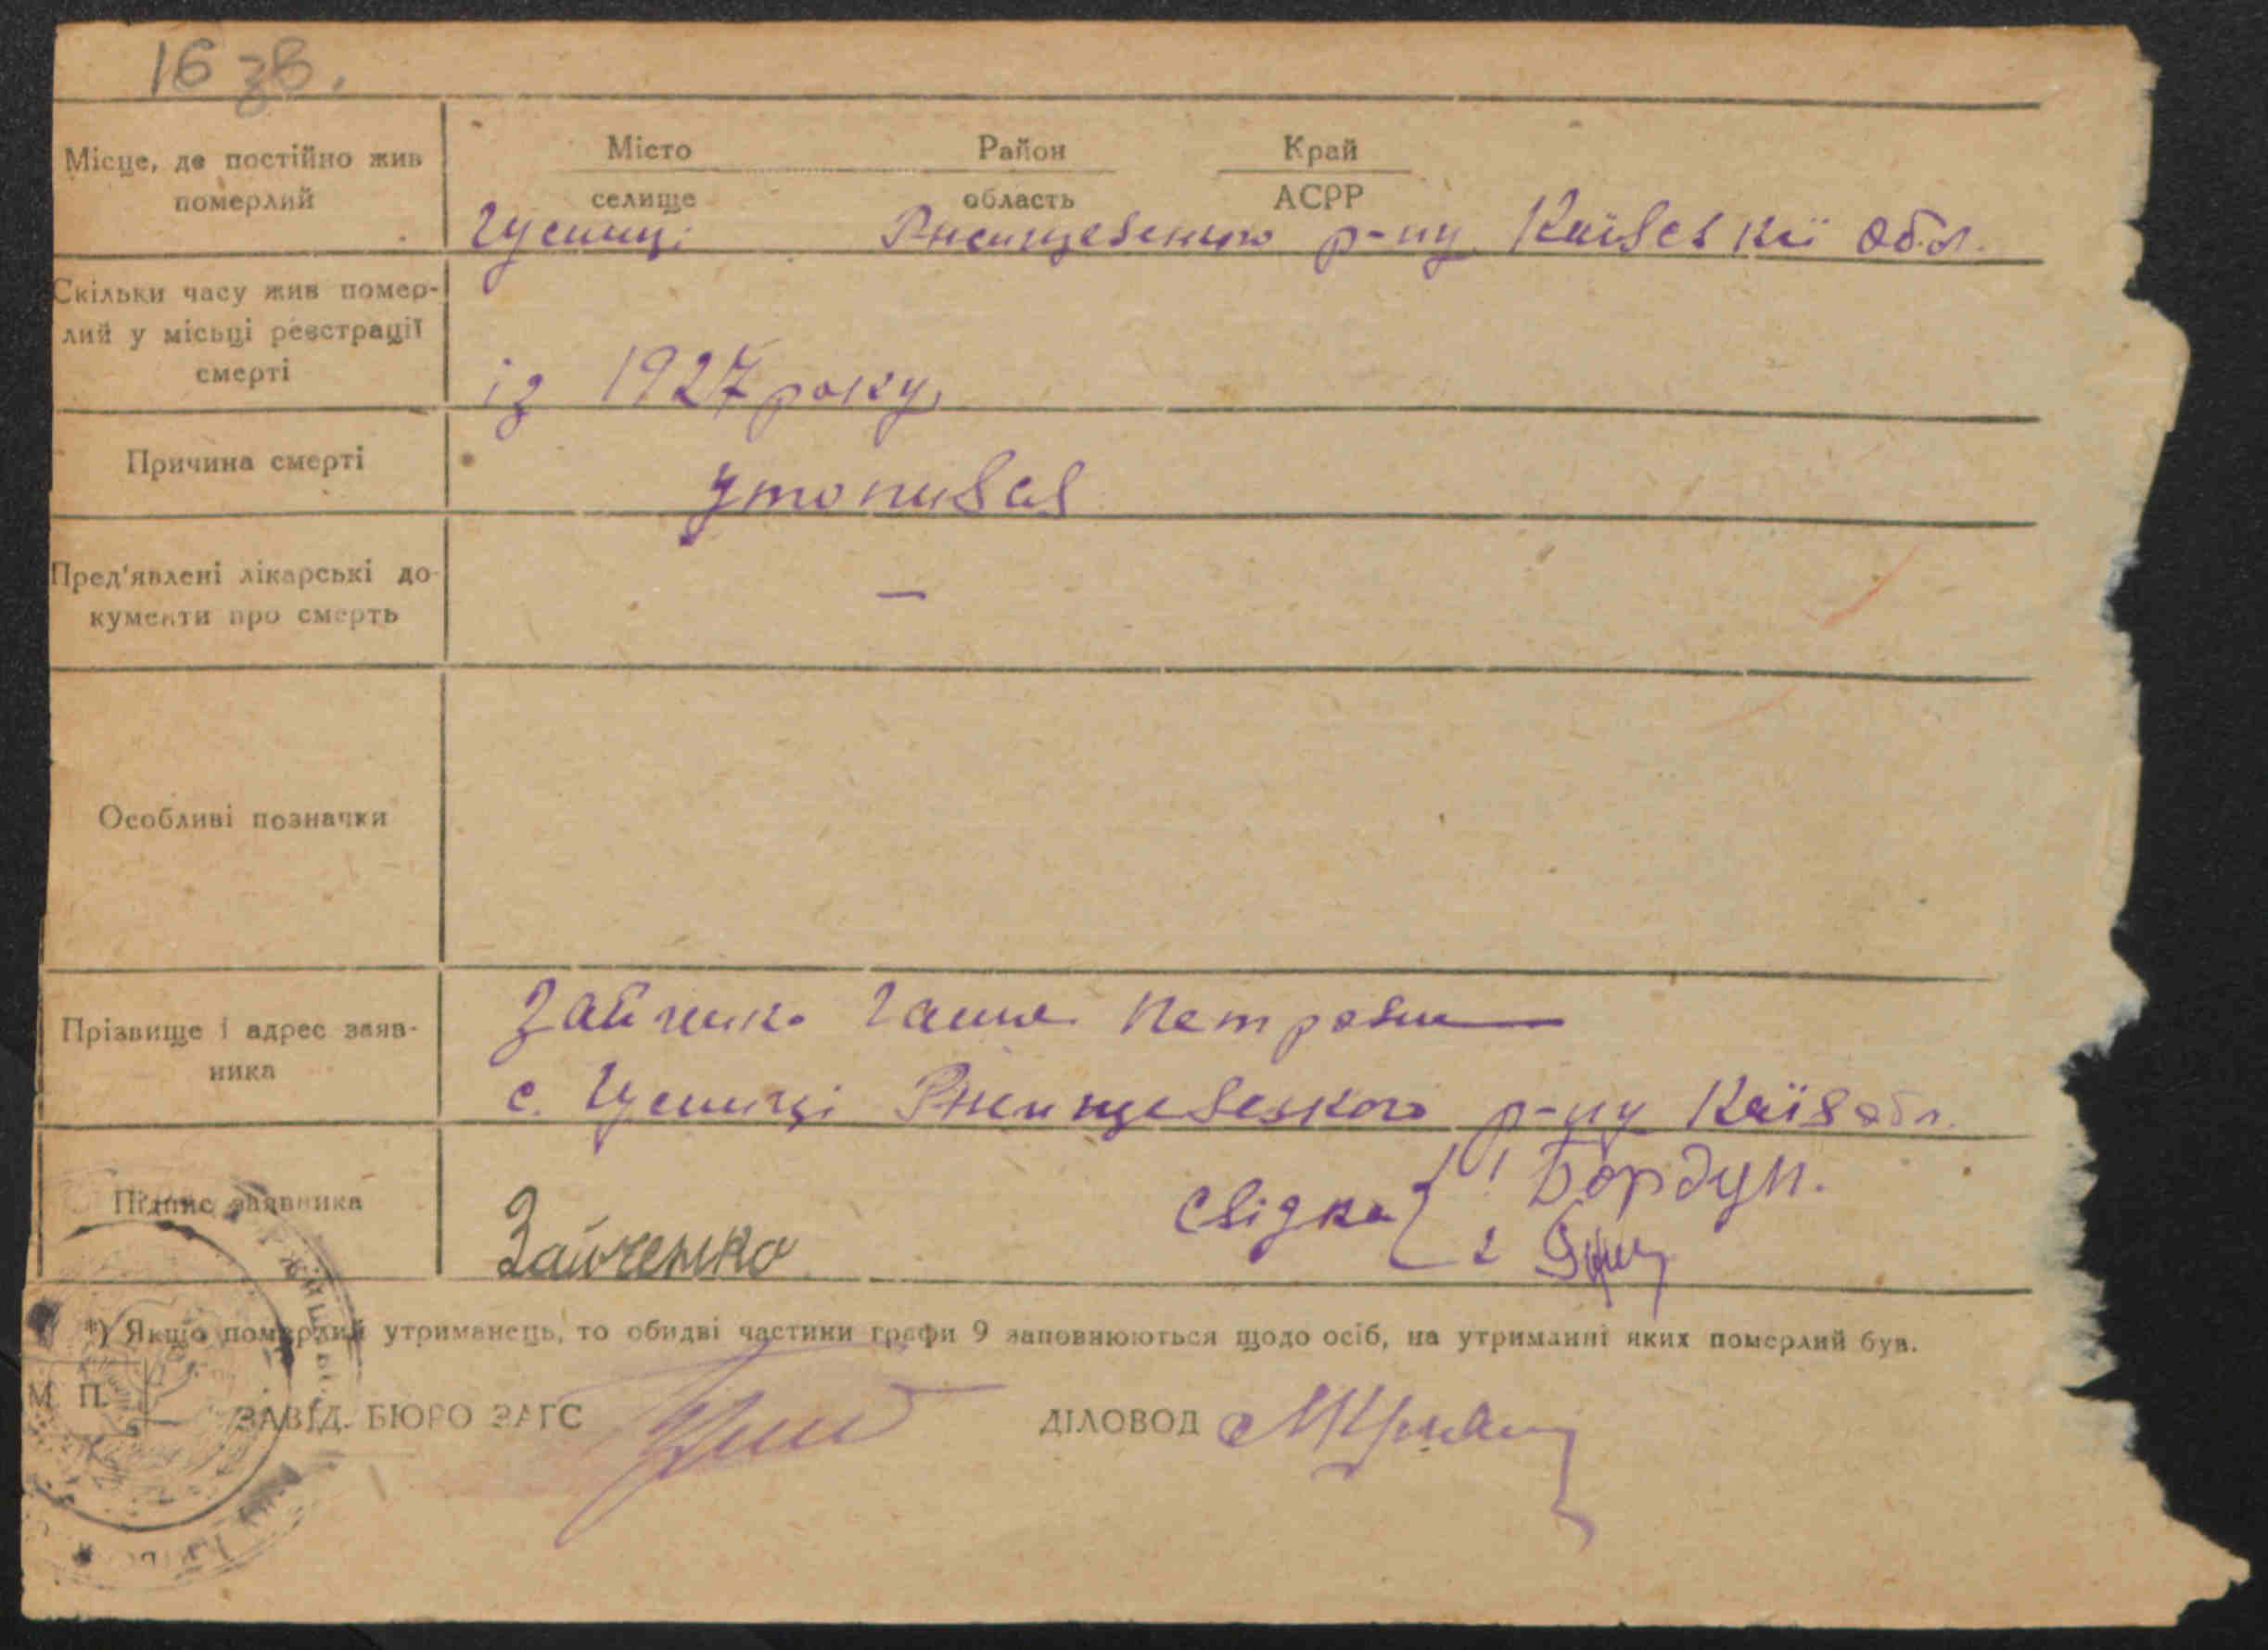 16 зв.
Місто Район Край
Місце, де постійно жив
померлий
селище область АСРР
Гусинці Ржищевського р-ну Київської обл.
Скільки часу жив помер-
лий у місьці реєстрації
смерті
із 1927 року
Причина смерті
утопився
Пред'явлені лікарські до-
кументи про смерть
—
Особливі позначки
Прізвище і адрес заяв-
ника
Зайченко Ганна Петровна
с. Гусинці Ржищевського р-ну Київ обл.
Підпис заявника
Зайченко
свідки 1 Бордун.
2
*) Якщо померлий утриманець, то обидві частини графи 9 заповнюються щодо осіб, на утриманні яких померлий був.
М. П.
ЗАВІД. БЮРО ЗАГС
ДІЛОВОД